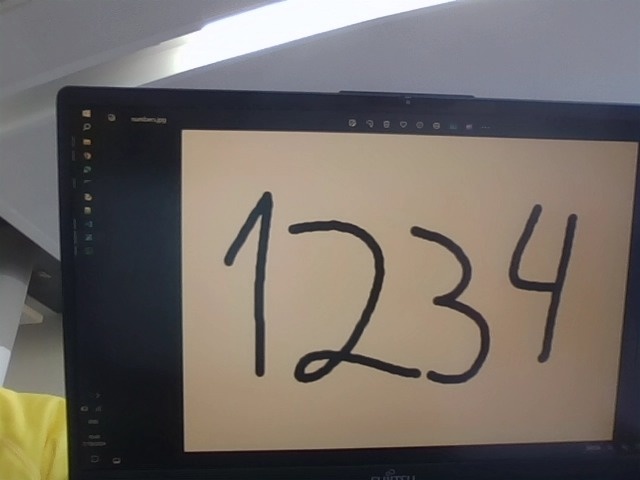 numbers.jpg
1234
FUJITSU